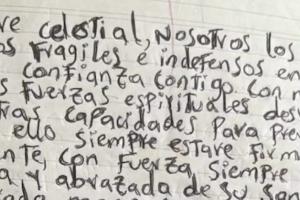 re celestial, NOSOTROS los
as fragiles e indefensos en
confianza contigo con
s fuerzas espirituales des
ras capacidades para pre
ello siempre estare firm
nte, con fuerza, siempre
a y abrazada de su san